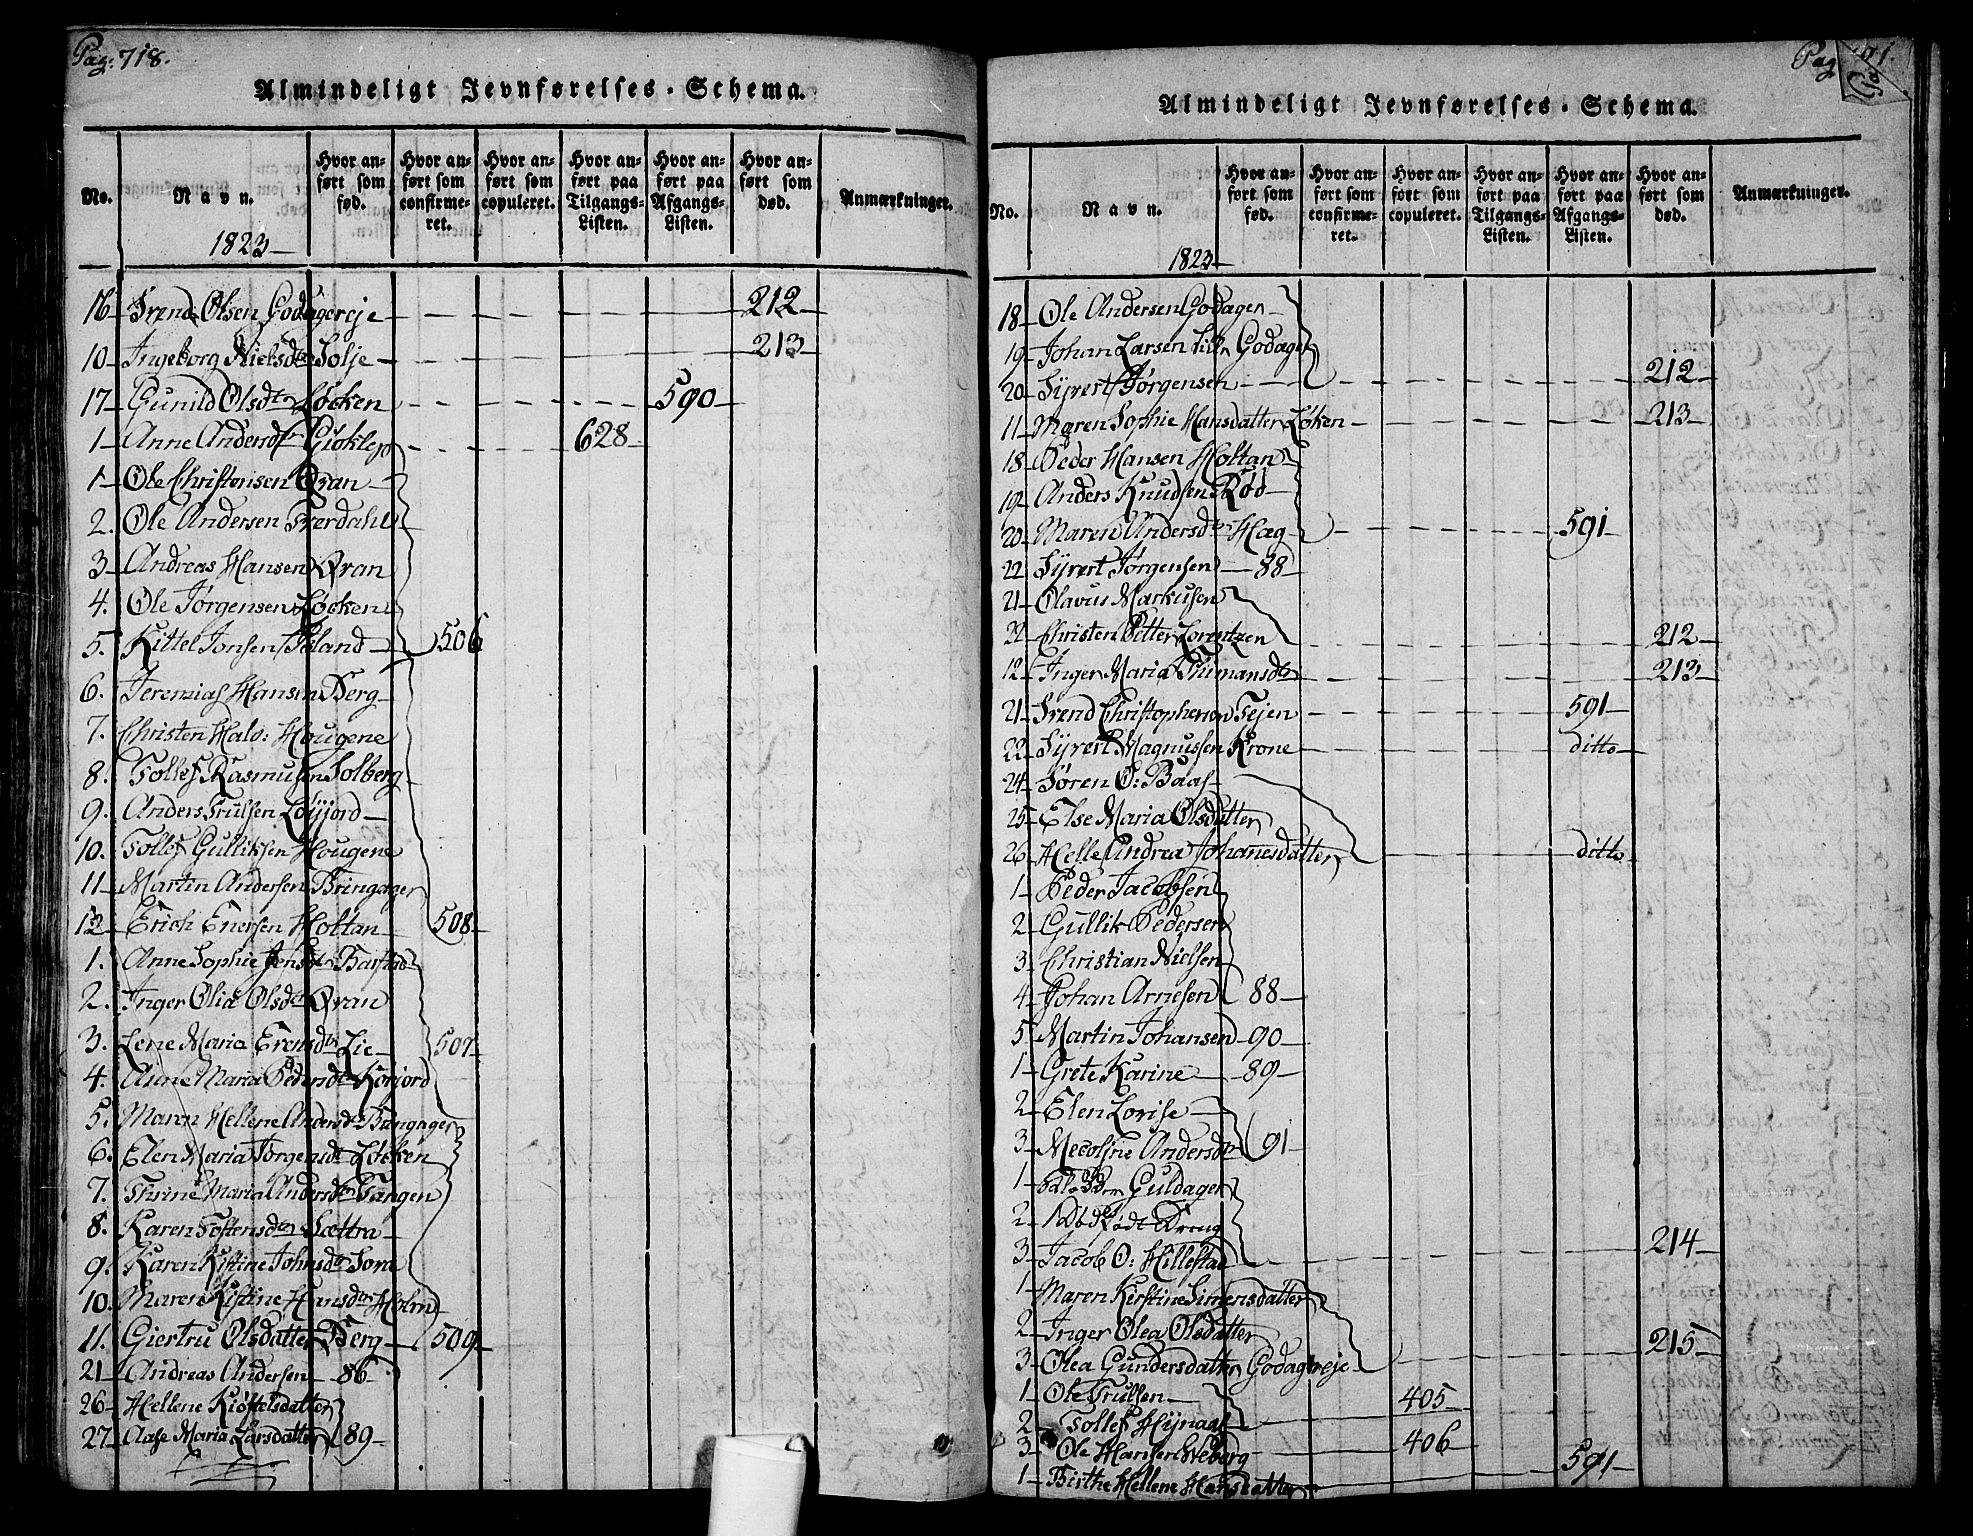 Pag: 718.
Almindeligt Jevnførelses-Schema.
No. Navn. Hvor anført som fød. Hvor anført som confirmeret. Hvor anført som copuleret. Hvor anført paa Tilgangs-Listen. Hvor anført paa Afgangs-Listen. Hvor anført som død. Anmærkninger.
1823
16 Svend Olsen Godagereje 212
10 Ingeborg Nielsdtr Solje 213
17 Gunild Olsdtr Løcken 590
1 Anne Andersdtr Giøklep 628
1 Ole Christensen Qvan
2. Ole Andersen Tverdahl
3 Andreas Hansen Qvan
4. Ole Jørgensen Løcken
5. Kittel Jonsen 506
6. Jeremias Hansen Berg
7. Christen Halv: Hougene
8. Tollef Rasmusen Solberg
9. Anders Trulsen Løyjord
10. Tollef Gulliksen Hougene
11 Martin Andersen Bringager
12 Erich Enersen Holtan 508
1. Anne Sophie Jensdtr
2. Inger Olia Olsdtr Qvan
3. Lene Maria Evensdtr Lie 507
4. Anne Maria Pedersdtr Korjord
5. Maren Hellene Andersdtr Bringager
6. Elen Maria Jørgensdtr Løcken
7. Thrine Maria Andersdtr Tangen
8. Karen Tostensdtr Sættra
9. Karen Kistine Johnsdtr
10. Maren Kistine Hansdtr Holm
11. Giertru Olsdatter Berg 509
21 Andreas Andersen 86
26 Hellene Kiøstelsdatter
27 Aase Maria Larsdatter 89
Pag 91.
Almindeligt Jevnførelses-Schema.
No. Navn. Hvor anført som fød. Hvor anført som confirmeret. Hvor anført som copuleret. Hvor anført paa Tilgangs-Listen. Hvor anført paa Afgangs-Listen. Hvor anført som død. Anmærkninger.
1823
18 Ole Andersen Godager
19 Johan Larsen Godager
20 Syvert Jørgensen 212
11 Maren Sophie Hansdatter Løken 213
18 Peder Hansen Holtan
19 Anders Knudsen Rød
20 Maren Andersdtr Hæg 591
22 Syvert Jørgensen 88
21 Olavus Markusen
22 Christen Petter Lorentzen 212
12 Inger Maria 213
21 Svend Christophersen Tejen 591
22 Syvert Magnussen Krone ditto
24 Søren O: Baas
25 Else Maria Olsdatter
26 Helle Andrea Johannesdatter ditto
1 Peder Jacobsen
2 Gullik Pedersen
3 Christian Nielsen
4 Johan Arnesen 88
5 Martin Johansen 90
1 Grete Karine 89
2 Elen Lovise
3 Andersdtr 91
1 Guldager
2 Dødfødt Dreng
3 Jacob O: Hillestad 214
1 Maren Kirstine Simensdatter
2 Inger Olea Olsdatter
3 Olea Gundersdatter Godagereje 215
1 Ole Trulsen
2 Tollef Hynaal 405
3 Ole Hansen Weberg 406
1 Birthe Hellene Hansdatter 591